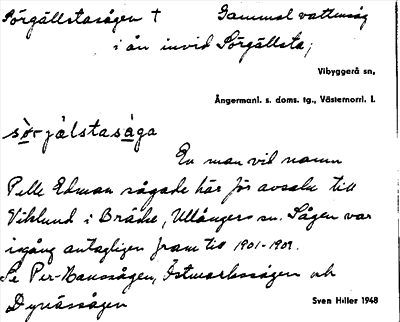 Sörgällstasågen † Gammal vattensåg
i ån invid Sörgällsta;
Vibyggerå sn,
Ångermanl. s. doms. tg., Västernorrl. l.
sö̀rjälstasàga
En man vid namn
Pelle Edman sågade här för avsalu till
Viklund i Bräcke, Ullångers sn. Sågen var
igång antagligen fram till 1901-1902.
Se Per-Hanssågen, Östmarkssågen och
Dynässågen
Sven Hiller 1948